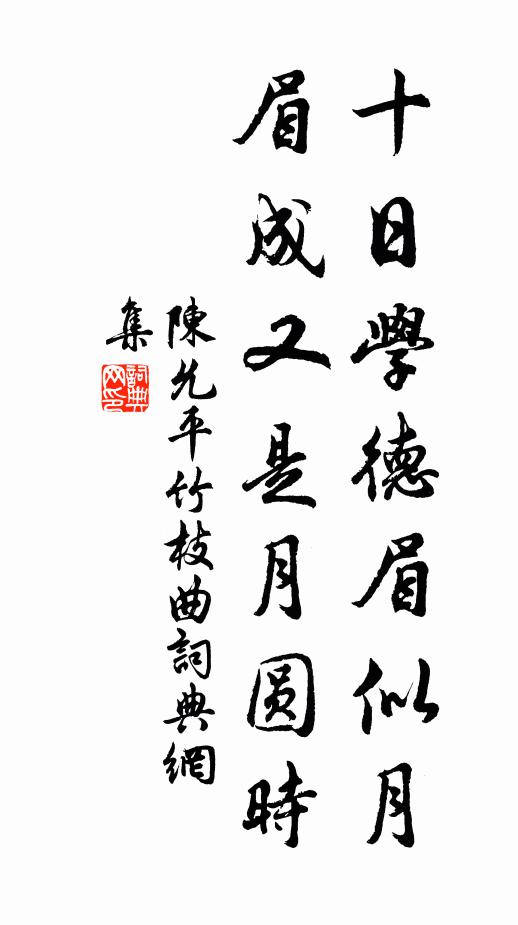 十日學德眉似月
眉成又是月圆時
陳允平竹枝曲詞典網
集
詞典
网印